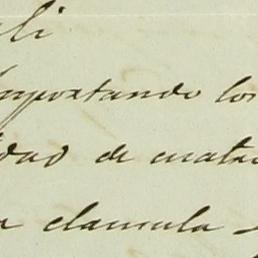 li
Importando los
idad de cuatro
a clausula